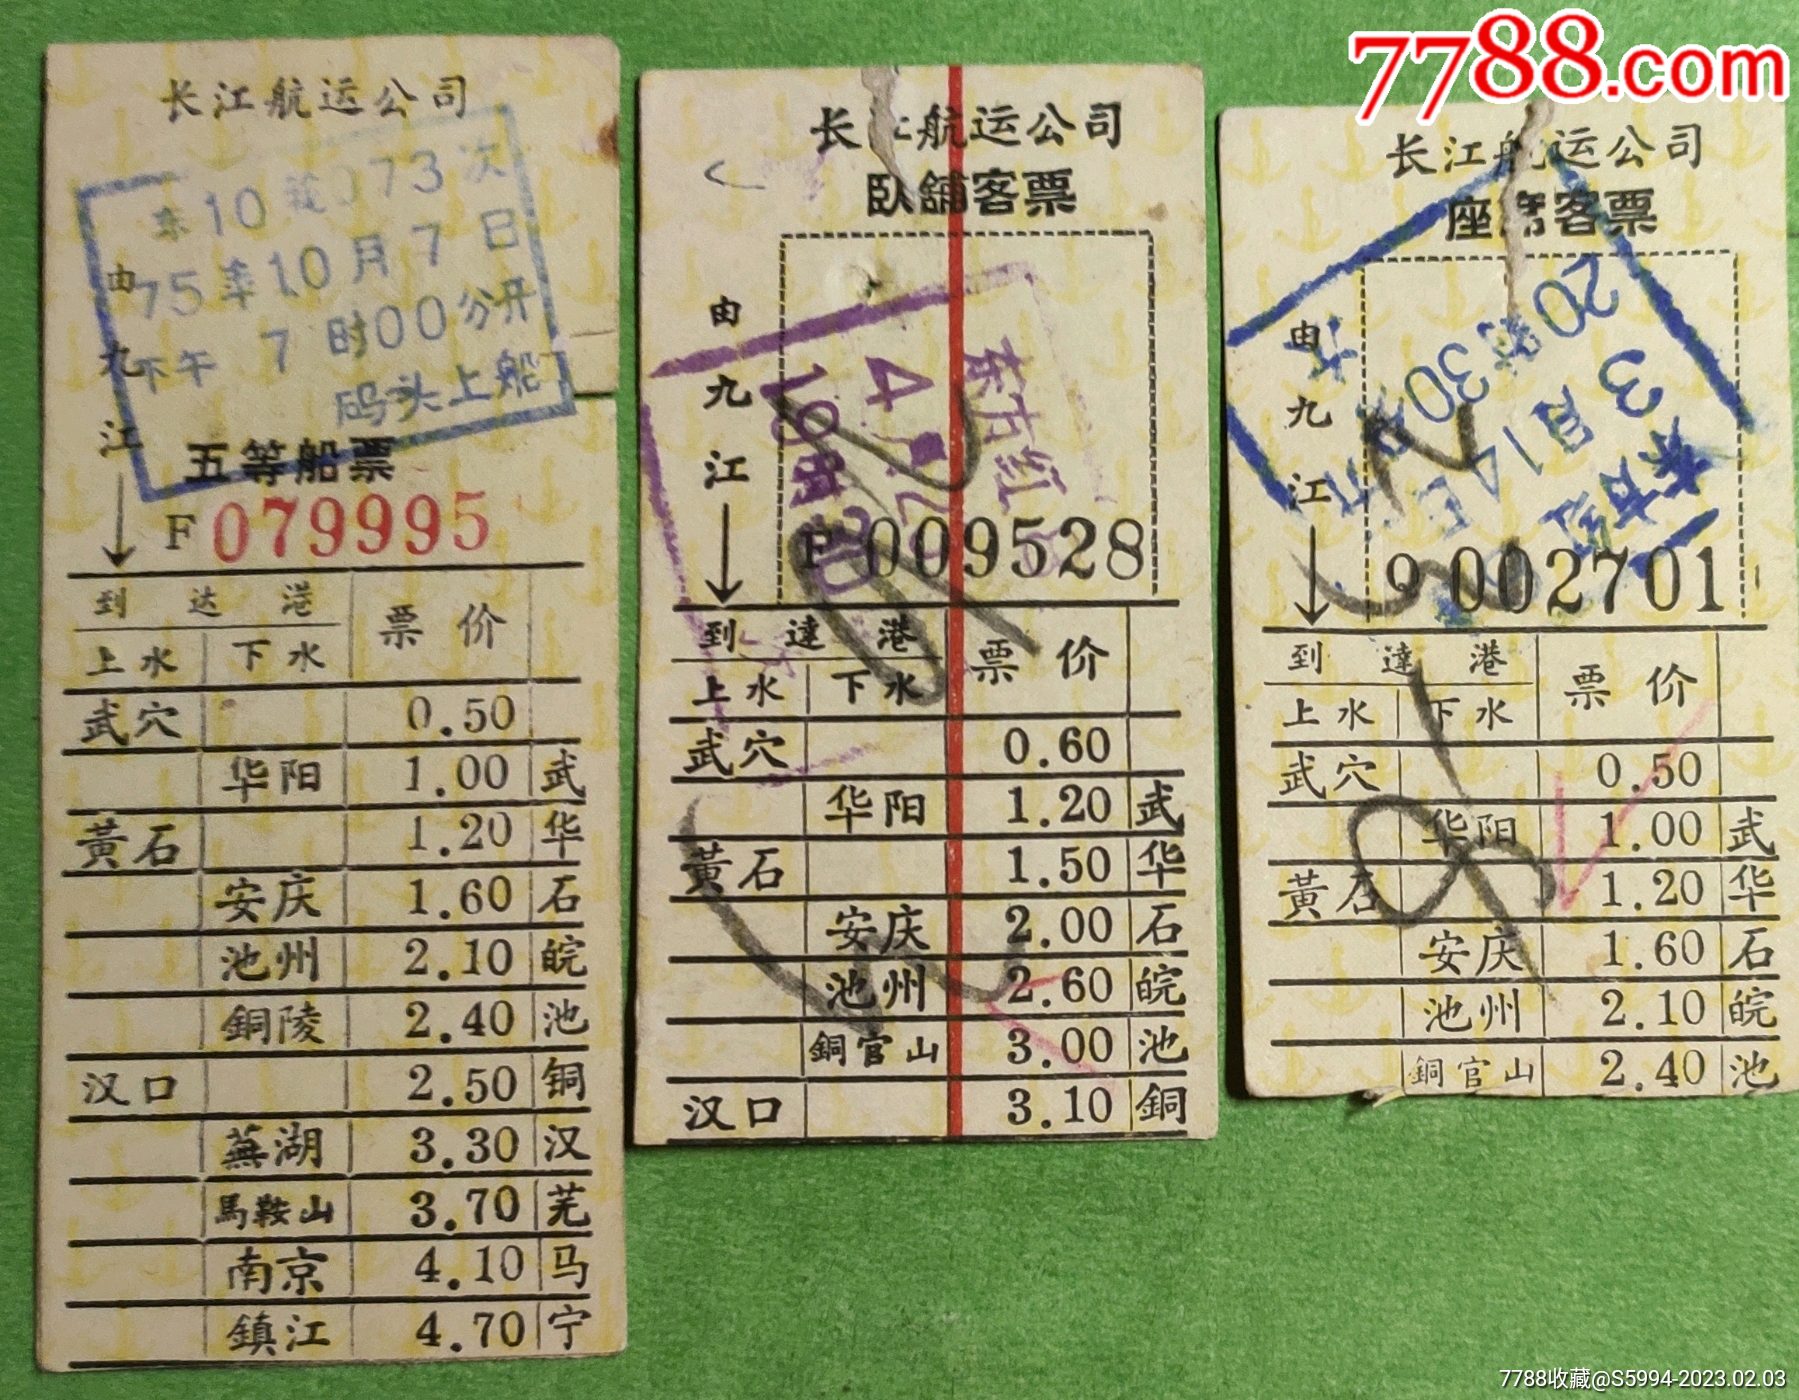 7788.com
长江航运公司
东10 航073次
75年10月7日
下午 7时00分开
码头上船
由九江
五等船票
F 079995
到达港 票价
上水 下水
武穴 0.50
华阳 1.00 武
黃石 1.20 华
安庆 1.60 石
池州 2.10 皖
銅陵 2.40 池
汉口 2.50 铜
蕪湖 3.30 汉
馬鞍山 3.70 芜
南京 4.10 马
鎮江 4.70 宁
长江航运公司
臥舖客票
由九江
东方红
F 009528
到達港 票价
上水 下水
武穴 0.60
华阳 1.20 武
黃石 1.50 华
安庆 2.00 石
池州 2.60 皖
銅官山 3.00 池
汉口 3.10 銅
长江航运公司
座席客票
由九江
20 30
3月14日
9 002701
到達港 票价
上水 下水
武穴 0.50
华阳 1.00 武
黃石 1.20 华
安庆 1.60 石
池州 2.10 皖
銅官山 2.40 池
7788收藏@S5994-2023.02.03